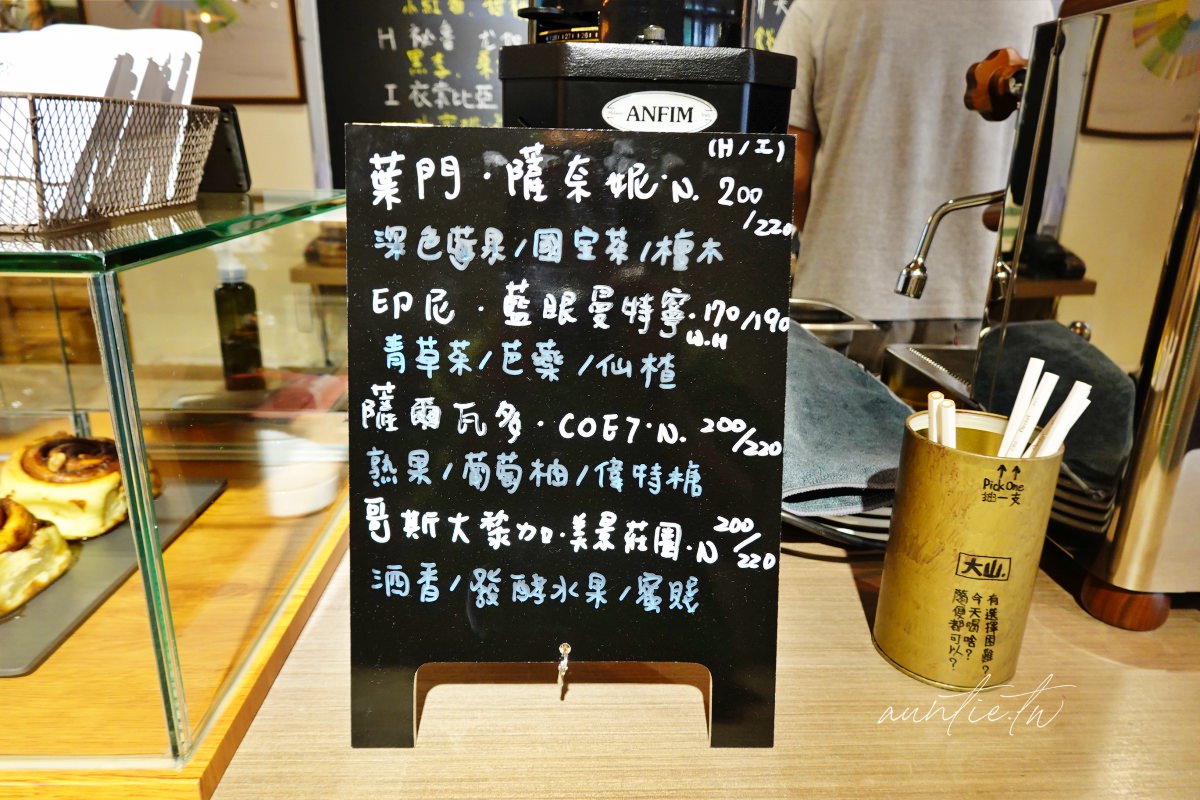 H 祕魯
黑李、
I 衣索比亞
ANFIM
(H/I)
葉門·薩奈妮·N. 200/220
深色莓果/國宝茶/檀木
印尼·藍眼曼特寧·170/190
W.H
青草茶/芭藥/仙楂
薩爾瓦多·COE7·N. 200/220
熟果/葡萄柚/偉特糖
哥斯大黎加·美景莊園·N 200/220
酒香/發酵水果/蜜餞
Pick One
抽一支
大山.
有選擇困難?
今天喝啥?
隨便都可以?
auntie.tw